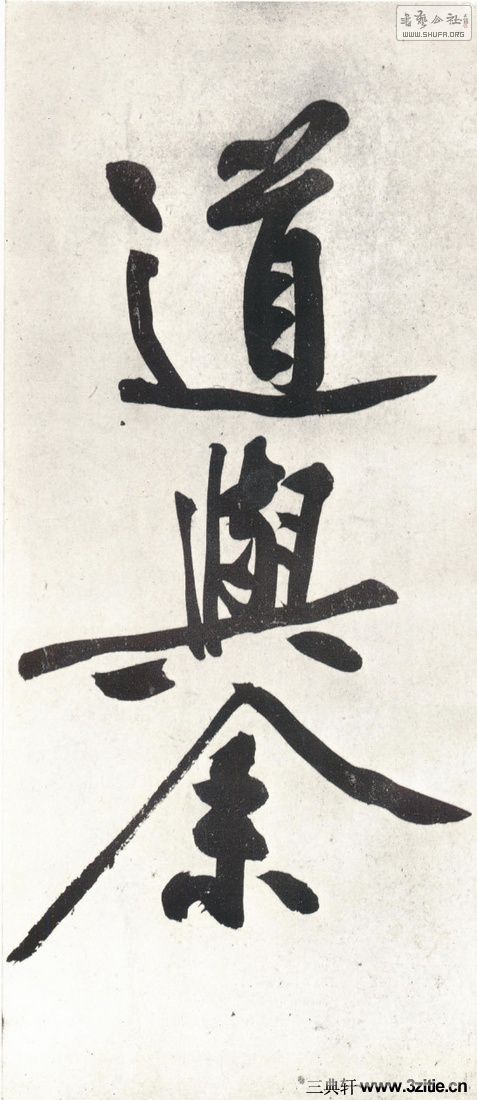 書藝公社
WWW.SHUFA.ORG
道
與
余
三典轩 www.3zitie.cn